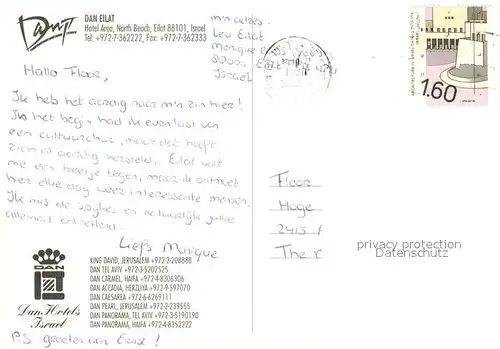 Dan
DAN EILAT
Hotel Area, North Beach, Eilat 88101, Israel
Tel: +972-7-362222, Fax: +972-7-362333
m'n adres:
Leu Eilat
Monique
Eilat
Israel
1.60
Hallo Floor,
Ik heb het aardig naar m'n zin hier!
In het begin had ik even last van
een cultuurschok, maar dat heeft
zich al aardig hersteld. Eilat valt
me een beetje tegen, maar ik ontmoet
hier elke dag weer interessante mensen.
Ik mis de saghes en natuurlijk jullie
allemaal ontzettend.
Liefs Monique
Floor
Hoge
2415
The
privacy protection
Datenschutz
DAN
Dan Hotels
Israel
KING DAVID, JERUSALEM +972-2-208888
DAN TEL AVIV +972-3-5202525
DAN CARMEL, HAIFA +972-4-8306306
DAN ACCADIA, HERZLIYA +972-9-597070
DAN CAESAREA +972-6-269111
DAN PEARL, JERUSALEM +972-2-239555
DAN PANORAMA, TEL AVIV +972-3-5190190
DAN PANORAMA, HAIFA +972-4-8352222
PS groeten aan Ernst!